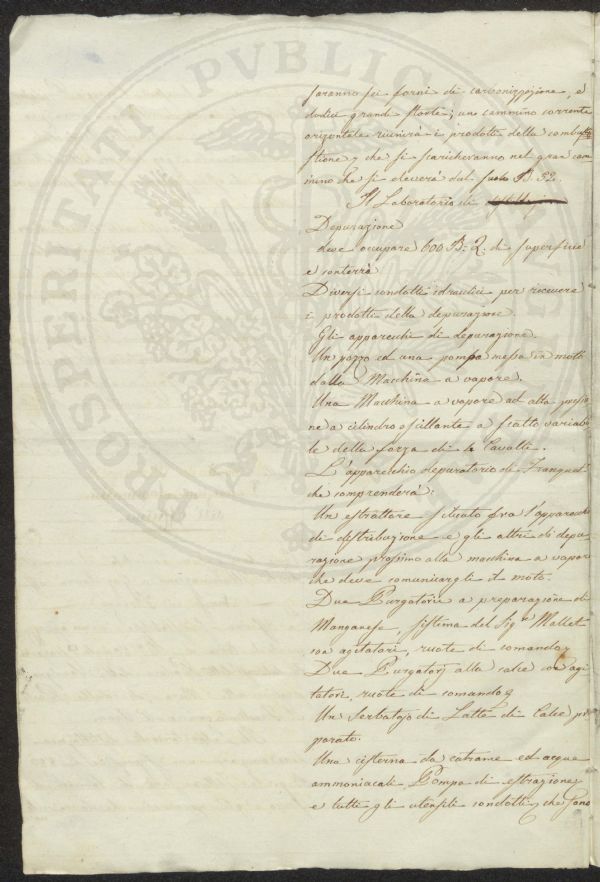 PROSPERITATI PVBLICAE
saranno sei forni di carbonizzazione, e
dodici grandi storte; uno cammino corrente
orizontale riunirà i prodotti della combu
stione, che si scaricheranno nel gran cam
mino che si eleverà dal suolo B. 32.
Il Laboratorio di
Depurazione
deve occupare 600 B. Q. di superficie
e conterrà
Diversi condotti idraulici per ricevere
i prodotti della depurazione.
Gli apparecchi di depurazione.
Un pozzo ed una pompa messa in moto
dalla Macchina a vapore.
Una Macchina a vapore ad alta pressio
ne a cilindro oscillante a scatto variabi
le della forza di 4 Cavalli.
L'apparecchio depuratorio di
che comprenderà:
Un estrattore situato fra l'apparecchio
di distribuzione e gli altri di depu
razione prossimo alla macchina a vapore
che deve comunicargli il moto.
Due Purgatorii a preparazione di
Manganese, sistema del Sig.r Mallet
con agitatori, ruote di comando,
Due Purgatorj alla calce con agi
tatori, ruote di comando,
Un Serbatojo di Latte di Calce pre
parato.
Una cisterna da catrame ed acque
ammoniacali Pompa di estrazione
e tutti gli utensili condotti, che sono